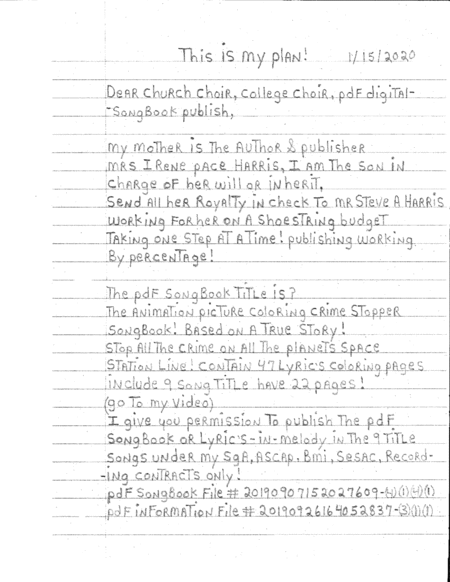 This is my plAN! 1/15/2020
DeAR ChURCh Choir, College Choir, pdf digiTAl-
-SongBook publish,
my moTheR is The AUThoR & publisher
mRS IRene pACe HARRis, I Am The Son in
ChARge of heR will oR inheriT,
Send All heR RoyAlTy in Check To mR STeve A HARRis
woRking FoR heR on A ShoeSTRing budgeT
TAking one STep AT A Time! publishing woRking
By peRcenTAge!
The pdf SongBook TiTle is?
The AnimATion picTuRe ColoRing CRime SToppeR
SongBook! BASed on A TRue SToRy!
STop All The CRime on All The plAneTs SpAce
STATion Line! ConTAin 47 LyRic's ColoRing pAges
inclUde 9 Song TiTle hAve 22 pAges!
(go To my Video)
I give you peRmission To publish The pdf
SongBook oR LyRic's-in-melody in The 9 TiTle
Songs UndeR my SgA, ASCAp, Bmi, SeSAC, RecoRd-
-ing ConTRACTs only!
pdf SongBook File # 20190907152027609-(4)(1)(4)(1)
pdf inFoRmATion File # 20190926164052837-(3)(1)(1)